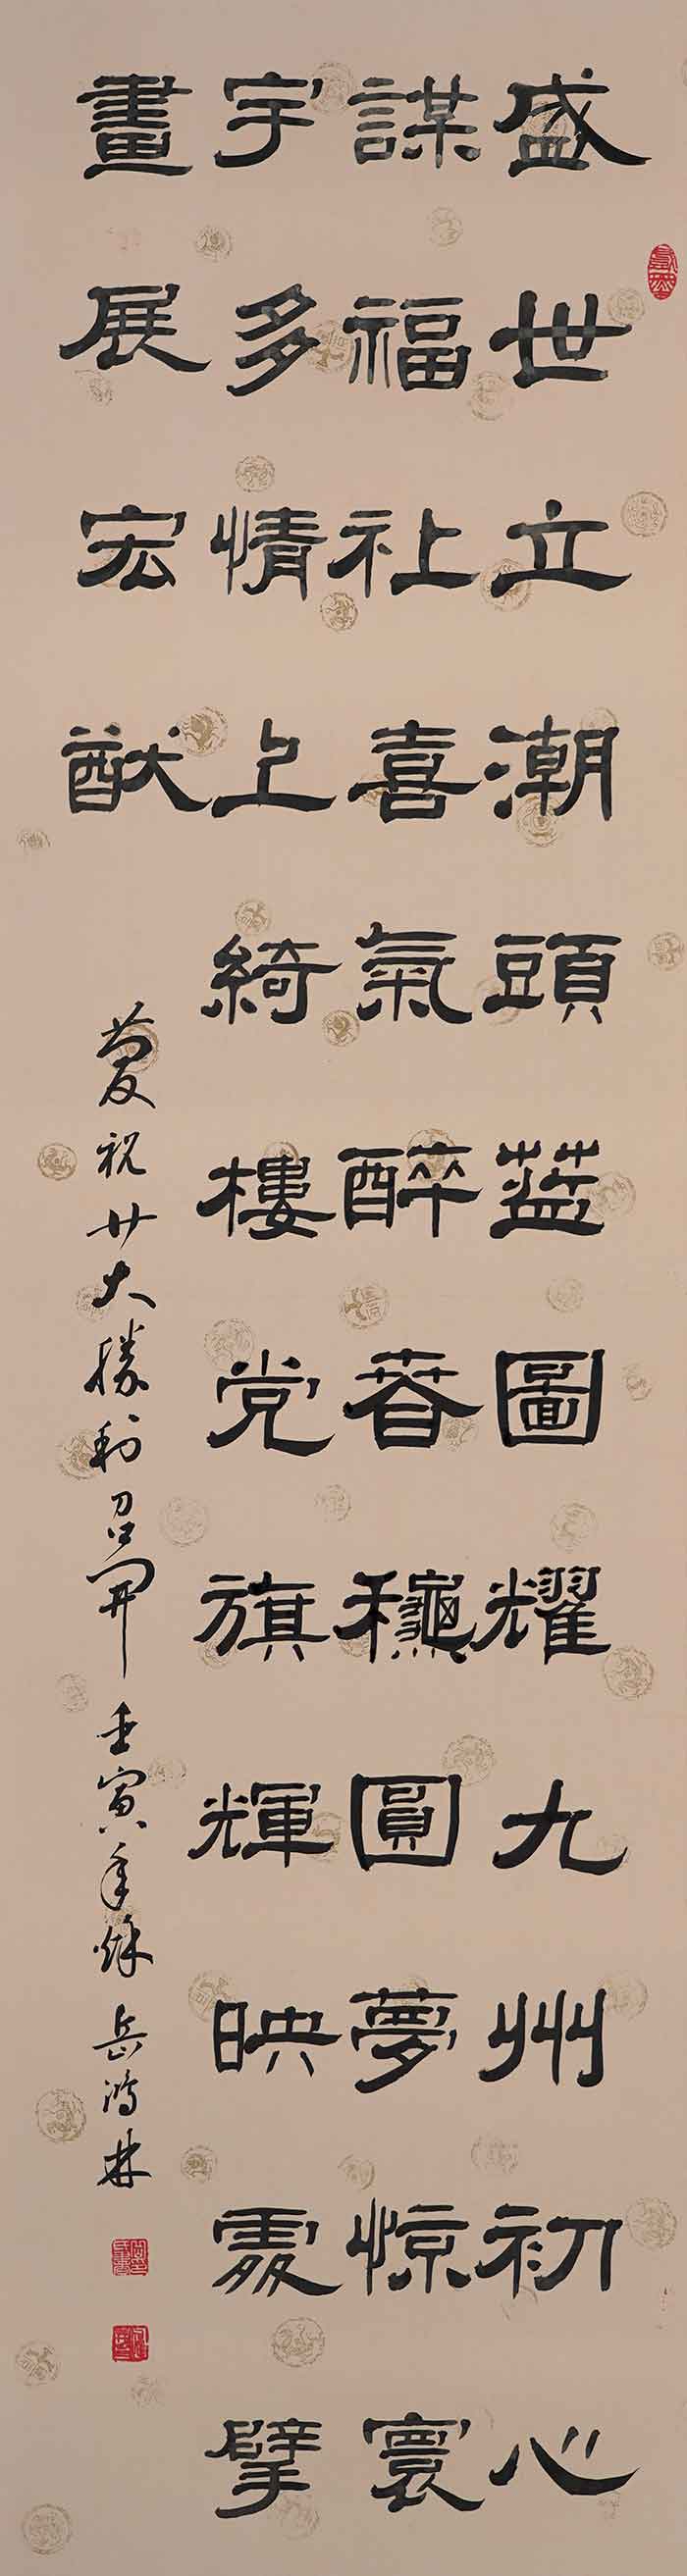 盛世立潮頭藍圖耀九州初心
謀福祉喜氣醉春龝圓夢惊寰
宇多情上綺樓党旗輝映處擘
畫展宏猷
慶祝廿大勝利召開 壬寅年秋 岳鴻林